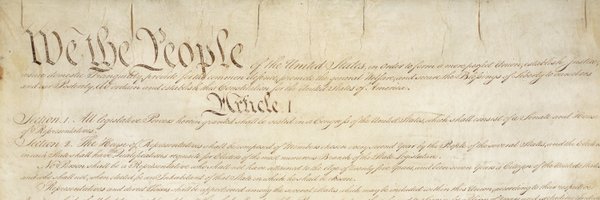 We the People of the United States, in Order to form a more perfect Union, establish Justice,
insure domestic Tranquility, provide for the common defence, promote the general Welfare, and secure the Blessings of Liberty to ourselves
and our Posterity, do ordain and establish this Constitution for the United States of America.
Article I.
Section. 1. All legislative Powers herein granted shall be vested in a Congress of the United States, which shall consist of a Senate and House
of Representatives.
Section. 2. The House of Representatives shall be composed of Members chosen every second Year by the People of the several States, and the Electors
in each State shall have Qualifications requisite for Electors of the most numerous Branch of the State Legislature.
No Person shall be a Representative who shall not have attained to the Age of twenty five Years, and been seven Years a Citizen of the United States,
and who shall not, when elected, be an Inhabitant of that State in which he shall be chosen.
Representatives and direct Taxes shall be apportioned among the several States which may be included within this Union, according to their respective